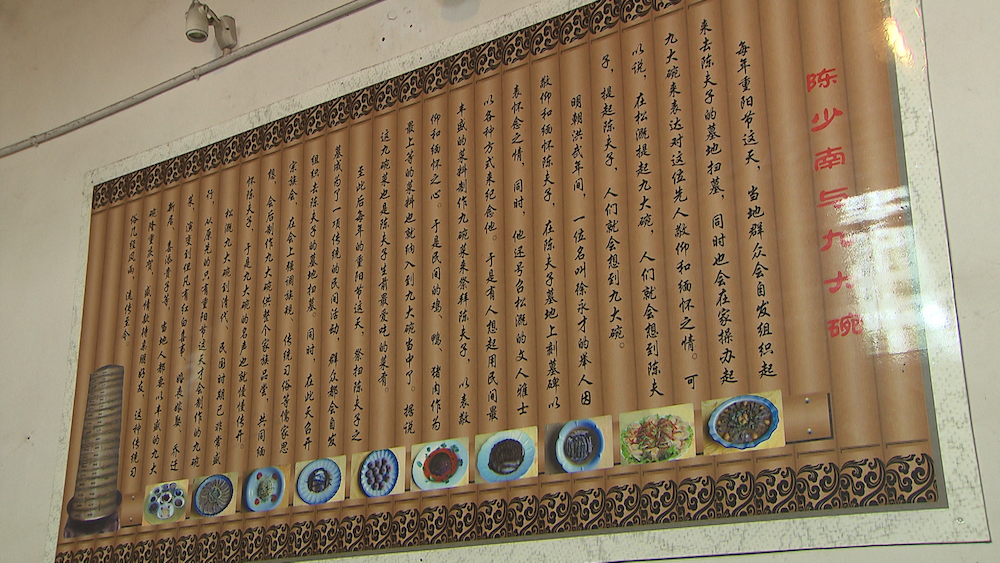 陈少南与九大碗
每年重阳节这天，当地群众会自发组织起
来去陈夫子的墓地扫墓，同时也会在家操办起
九大碗来表达对这位先人敬仰和缅怀之情。可
以说，在松溉提起九大碗，人们就会想到陈夫
子，提起陈夫子，人们就会想到九大碗。
明朝洪武年间，一位名叫徐永才的举人因
敬仰和缅怀陈夫子，在陈夫子墓地上刻墓碑以
表怀念之情，同时，他还号召松溉的文人雅士
以各种方式来纪念他。于是有人想起用民间最
丰盛的菜料制作九碗菜来祭拜陈夫子，以表敬
仰和缅怀之心。于是民间的鸡、鸭、猪肉作为
最上等的菜料也就纳入到九大碗当中了。据说
这九碗菜也是陈夫子生前最爱吃的菜肴。
至此后每年的重阳节这天，祭扫陈夫子之
墓成为了一项传统的民间活动，群众都会自发
组织去陈夫子的墓地扫墓，同时，在此天召开
宗族会，在会上强调族规、传统习俗等儒家思
想，会后制作九大碗供整个家族品尝，共同缅
怀陈夫子，于是九大碗的名声也就慢慢传开。
松溉九大碗到清代、民国时期已非常盛
行，从原先的只有重阳节这天才会制作的九碗
菜，演变到但凡有红白喜事、婚丧嫁娶、乔迁
新居、喜添贵子等，当地人都要以丰盛的九大
碗隆重庆贺，盛情款待亲朋好友，这种传统习
俗几经风雨，流传至今。